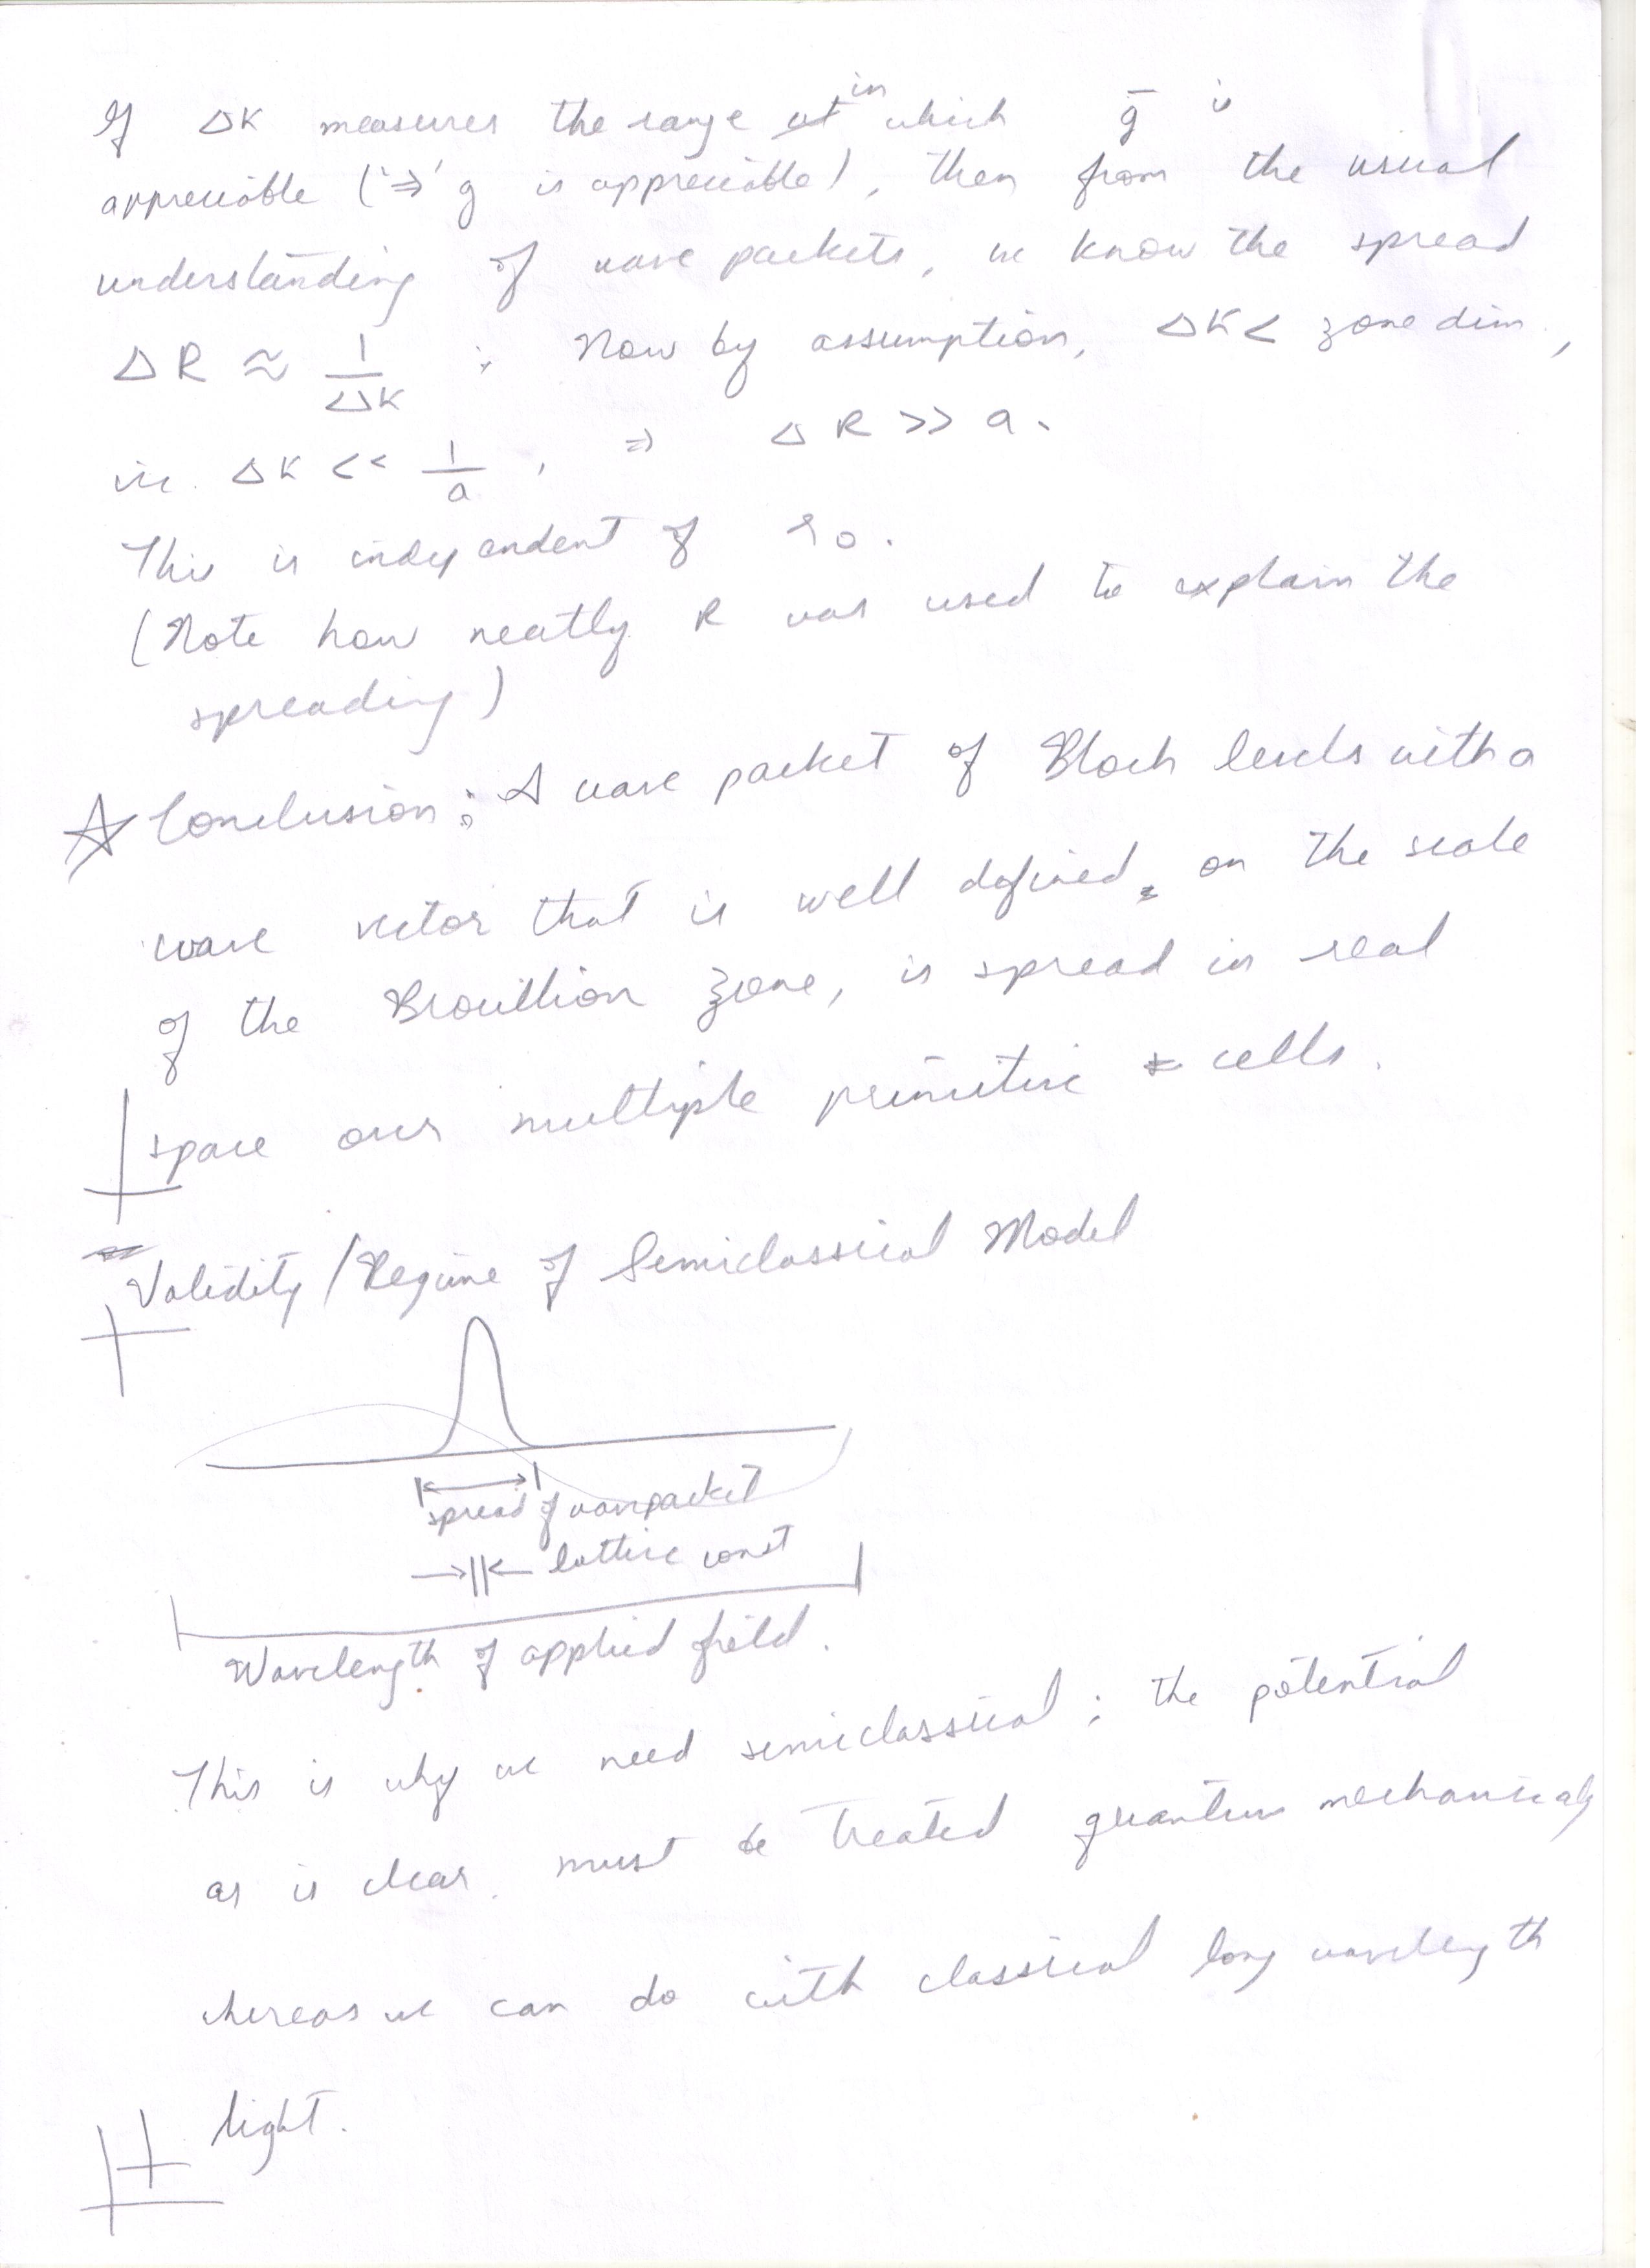 If ΔK measures the range in which ḡ is
appreciable ('⇒' g is appreciable), then from the usual
understanding of wave packets, we know the spread
ΔR ≈ 1/ΔK ; Now by assumption, ΔK < zone dim,
i.e. ΔK << 1/a, ⇒ ΔR >> a.
This is independent of r₀.
(Note how neatly R was used to explain the
spreading)
☆ Conclusion: A wave packet of Bloch levels with a
wave vector that is well defined on the scale
of the Brouillion zone, is spread in real
space over multiple primitive cells.
Validity/Regime of Semiclassical Model
spread of wavepacket
lattice const
Wavelength of applied field.
This is why we need semiclassical; the potential
as is clear, must be treated quantum mechanicaly
whereas we can do with classical long wavelength
light.